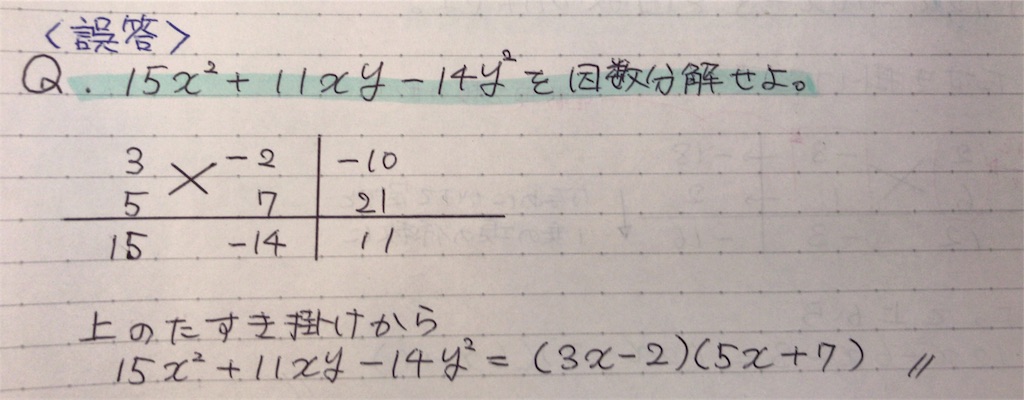 〈誤答〉
Q. 15x² + 11xy - 14y² を因数分解せよ。
3 -2 -10
5 7 21
15 -14 11
上のたすき掛けから
15x² + 11xy - 14y² = (3x-2)(5x+7) //